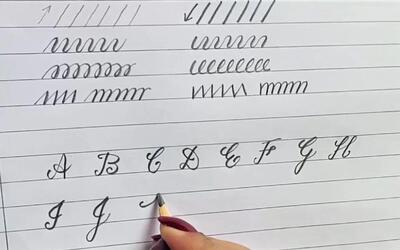 A B C D E F G H
I J